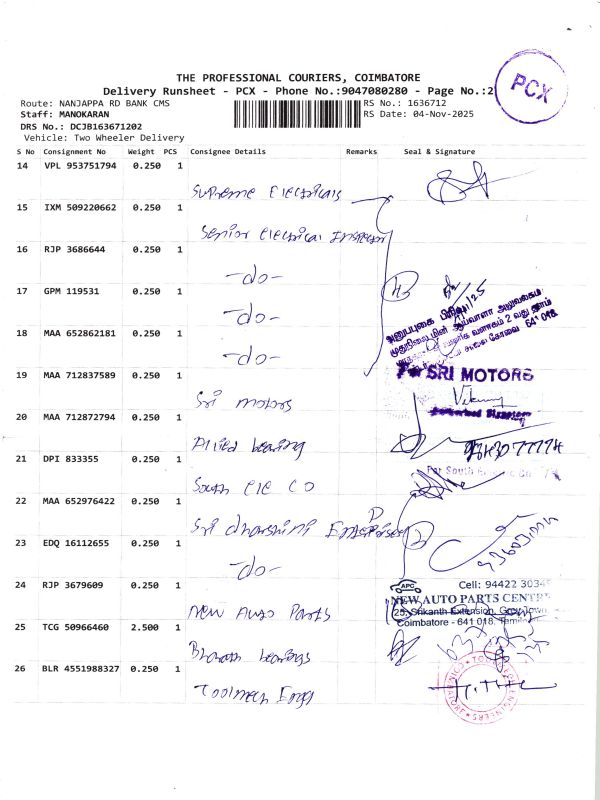 THE PROFESSIONAL COURIERS, COIMBATORE
Delivery Runsheet - PCX - Phone No.:9047080280 - Page No.:2
PCX
Route: NANJAPPA RD BANK CMS
RS No.: 1636712
Staff: MANOKARAN
RS Date: 04-Nov-2025
DRS No.: DCJB163671202
Vehicle: Two Wheeler Delivery
S No Consignment No Weight PCS Consignee Details Remarks Seal & Signature
14 VPL 953751794 0.250 1
Supreme Electricals
15 IXM 509220662 0.250 1
Senior Electrical Inspector
16 RJP 3686644 0.250 1
-do-
17 GPM 119531 0.250 1
-do-
18 MAA 652862181 0.250 1
-do-
19 MAA 712837589 0.250 1
For SRI MOTORS
Sri motors
20 MAA 712872794 0.250 1
Allied bearing
21 DPI 833355 0.250 1
South Ele Co
For South
22 MAA 652976422 0.250 1
Sri dharshini Enterprises
23 EDQ 16112655 0.250 1
-do-
24 RJP 3679609 0.250 1
APC
Cell: 94422 3034
NEW AUTO PARTS CENTRE
New Auto Parts
Srikanth Extension,
Coimbatore - 641 018,
25 TCG 50966460 2.500 1
Bharath bearings
26 BLR 4551988327 0.250 1
Toolmech Engg